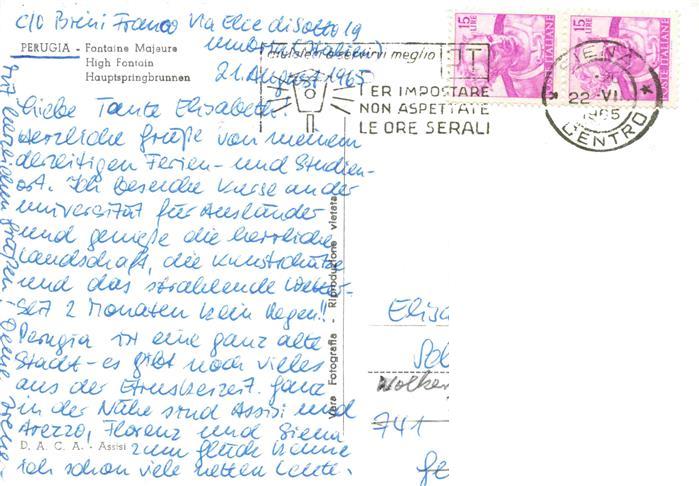 c/o Brini Franco Via Elce di Sotto 19
Umbria (Italien)
21. August 1965
PERUGIA - Fontaine Majeure
High Fontain
Hauptspringbrunnen
servirvi meglio
PER IMPOSTARE
NON ASPETTATE
LE ORE SERALI
15 LIRE
POSTE ITALIANE
15 LIRE
POSTE ITALIANE
SIENA
22 - VI
1965
CENTRO
Liebe Tante Elisabeth.
Herzliche Grüße von meinem
derzeitigen Ferien- und Studien-
ort. Ich besuche Kurse an der
Universität für Ausländer
und genieße die herrliche
Landschaft, die Kunstschätze
und das strahlende Wetter-
seit 2 Monaten kein Regen!!
Perugia ist eine ganz alte
Stadt - es gibt noch vieles
aus der Etruskerzeit. Ganz
in der Nähe sind Assisi und
Arezzo, Florenz und Siena
zum Glück kenne
ich schon viele netten Leute.
Mit herzlichen Grüßen! Deine
D. A. C. A. - Assisi
Vera Fotografia Riproduzione vietata
Elisa
741